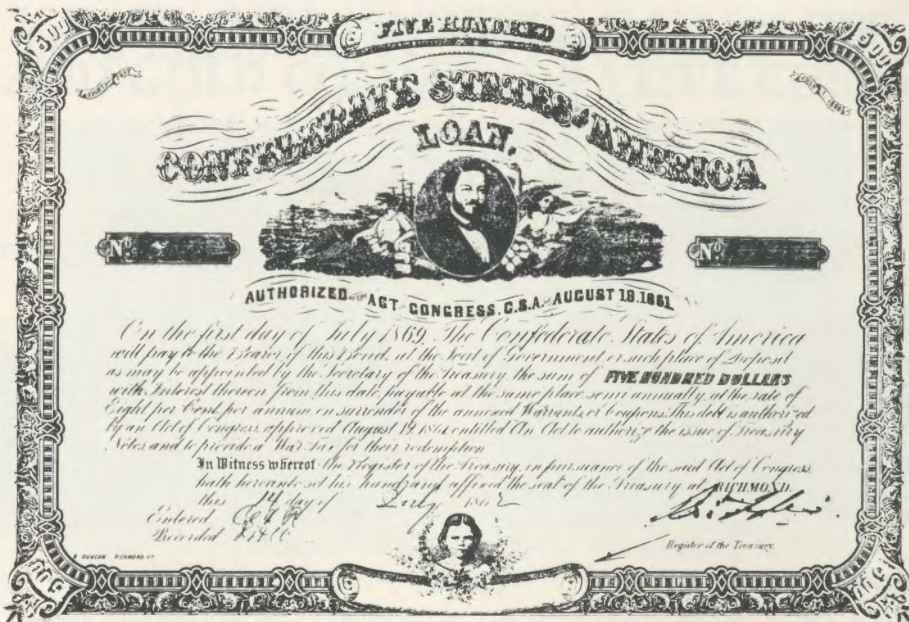 FIVE HUNDRED
CONFEDERATE STATES OF AMERICA
LOAN,
No
No
AUTHORIZED BY ACT OF CONGRESS. C.S.A. AUGUST 19.1861.
On the first day of July 1869, The Confederate States of America
will pay to the Bearer of this Bond, at the Seat of Government, or such place of Deposit
as may be appointed by the Secretary of the Treasury, the sum of FIVE HUNDRED DOLLARS
with Interest thereon from this date, payable at the same place, semi annually, at the rate of
Eight per Cent per annum on surrender of the annexed Warrants or Coupons. This debt is authorized
by an Act of Congress, approved August 19, 1861, entitled An Act to authorize the issue of Treasury
Notes, and to provide a War Tax for their redemption.
In Witness whereof the Register of the Treasury, in pursuance of the said Act of Congress,
hath hereunto set his hand and affixed the seal of the Treasury at RICHMOND,
this 14 day of July 1862
Entered
Recorded
Register of the Treasury.
DUNCAN RICHMOND VA